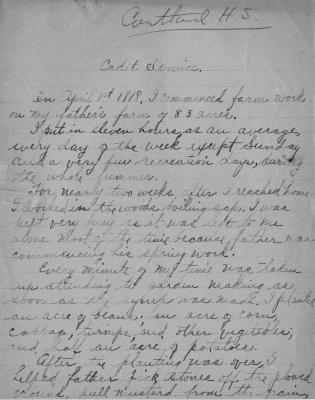 Cortland H S.
Cadet Service.
On April 1st 1918, I commenced farm work
on my father's farm of 85 acres.
I put in eleven hours, as an average,
every day of the week except Sunday
and a very few recreation days, during
the whole summer.
For nearly two weeks after I reached home
I worked in the woods boiling sap. I was
kept very busy as it was left to me
alone most of the time because father was
commencing his spring work.
Every minute of my time was taken
up attending to garden making as
soon as the syrup was made. I planted
an acre of beans, an acre of corn,
cabbage, turnips, and other vegetables,
and half an acre of potatoes.
After the planting was over, I
helped father pick stones off the plowed
ground, pull mustard from the grain,